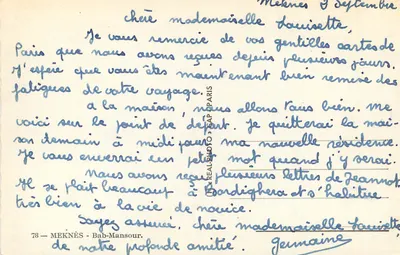 Meknès 9 Septembre
chère mademoiselle Louisette,
Je vous remercie de vos gentilles cartes de
Paris que nous avons reçues depuis plusieurs jours.
J'espère que vous êtes maintenant bien remise des
fatigues de votre voyage.
a la maison, nous allons tous bien. me
voici sur le point de départ. Je quitterai la mai-
son demain à midi pour ma nouvelle résidence.
Je vous enverrai un petit mot quand j'y serai.
nous avons reçu plusieurs lettres de Jeannot
Il se plaît beaucoup à Bordighera et s'habitue
très bien à la vie de novice.
Soyez assurée, chère mademoiselle Louisette,
78 — MEKNÈS - Bab-Mansour.
de notre profonde amitié.
Germaine
REAL-PHOTO PARIS